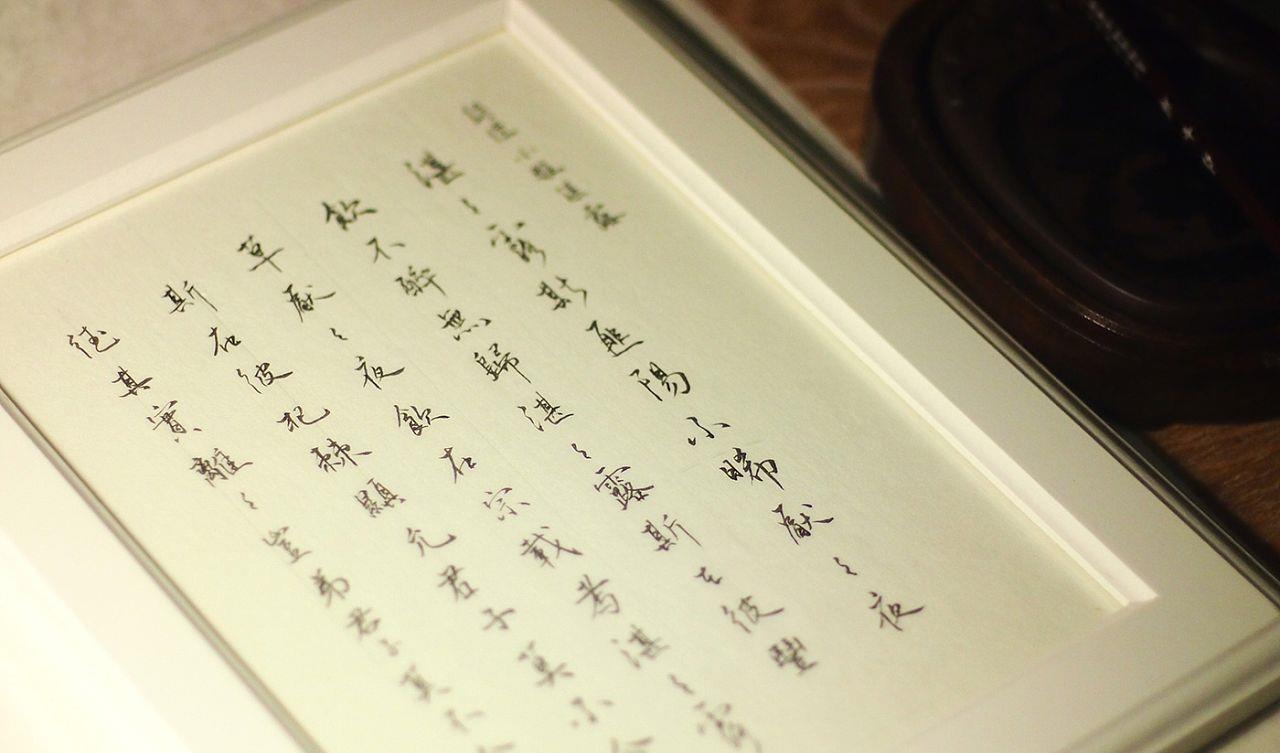 詩經小雅湛露
湛々露斯匪陽不晞厭々夜
飲不醉無歸湛々露斯在彼豐
草厭々夜飲在宗載考湛々露
斯在彼杞棘顯允君子莫不
德其實離々豈弟君子莫不